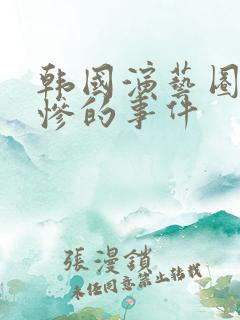 韩國演藝圈
慘的事件
張漫鎖
未經同意禁止轉載